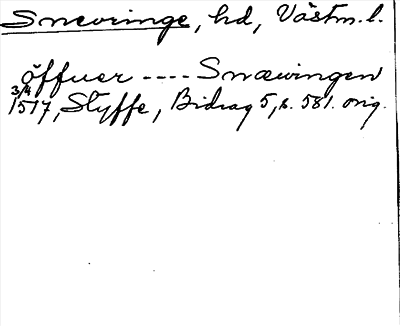 Snevringe, hd, Västm. l.
öffuer ---- Snæwingen
3/4 1517, Styffe, Bidrag 5, s. 581. orig.